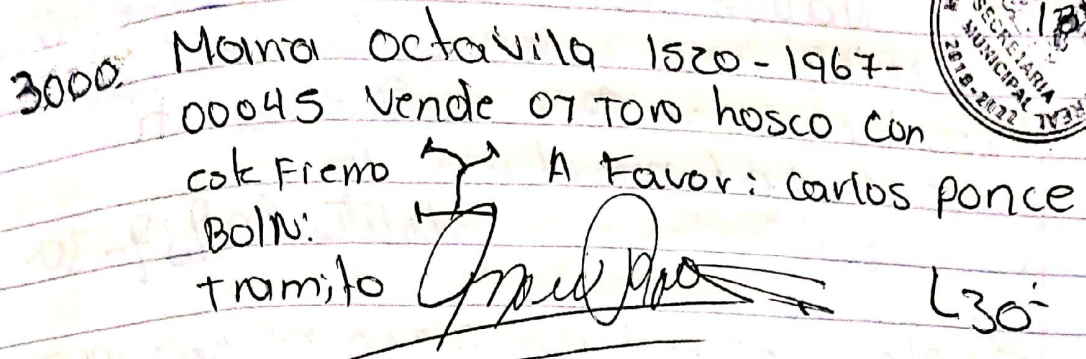 3000. Maria Octavila 1520-1967-
00045 Vende 07 Toro hosco con
este Fierro A Favor: Carlos Ponce
BolN:
tramito
L30
SECRETARIA
MUNICIPAL
2018-2022
REAL